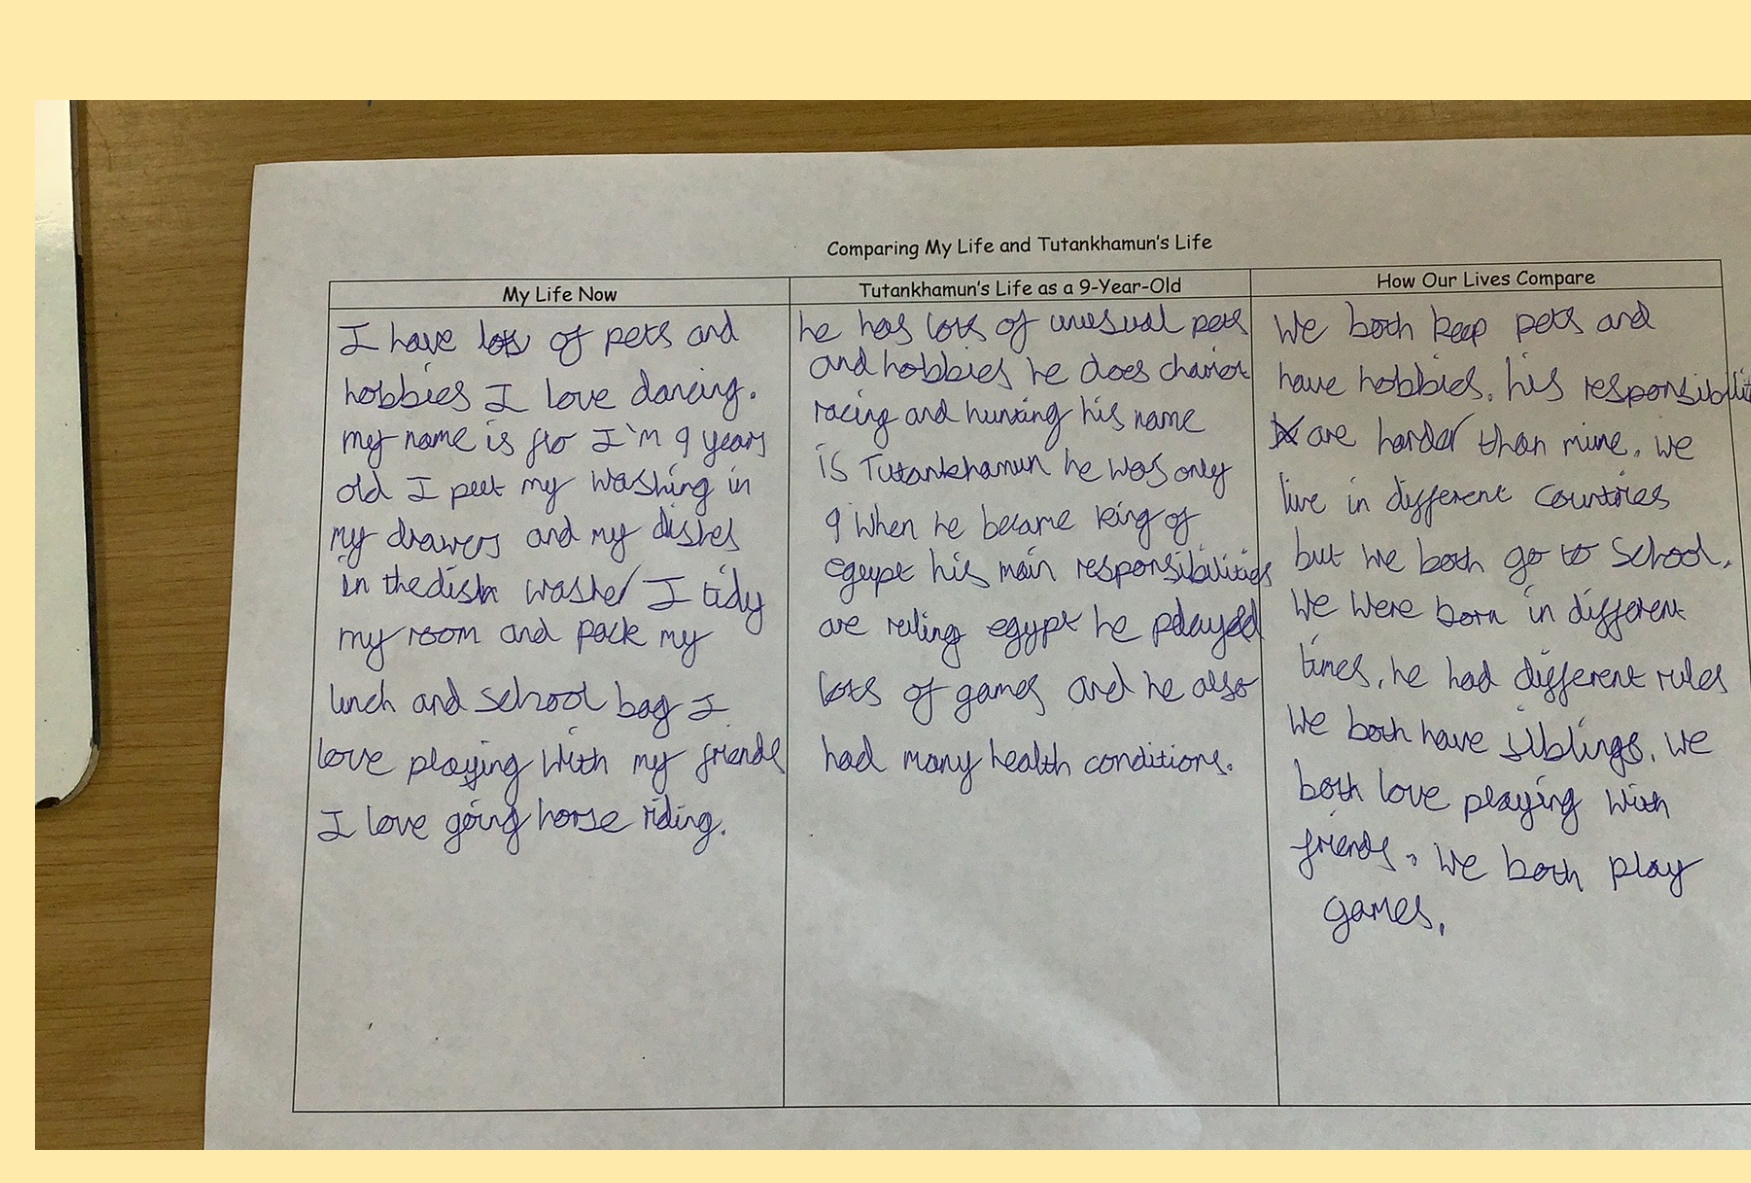 Comparing My Life and Tutankhamun's Life
My Life Now
I have lots of pets and
hobbies I love dancing.
my name is flo I'm 9 years
old I put my washing in
my drawers and my dishes
in the dish washer I tidy
my room and pack my
lunch and school bag I
love playing with my friends
I love going horse riding.
Tutankhamun's Life as a 9-Year-Old
he has lots of unusual pets
and hobbies he does chariot
racing and hunting his name
is Tutankhamun he was only
9 when he became king of
egypt his main responsibilities
are ruling egypt he played
lots of games and he also
had many health conditions.
How Our Lives Compare
We both keep pets and
have hobbies. his
are harder than mine. we
live in different countries
but we both go to school.
We were born in different
times. he had different rules
We both have siblings. we
both love playing with
friends. We both play
games.